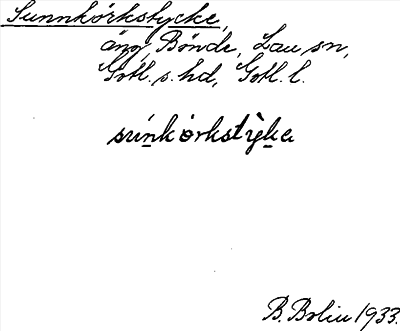 Sunnkörkstycke,
äng, Bönde, Lau sn,
Gotl. s. hd, Gotl. l.
su̇nkȯrkstẏka
B. Bolin 1933.